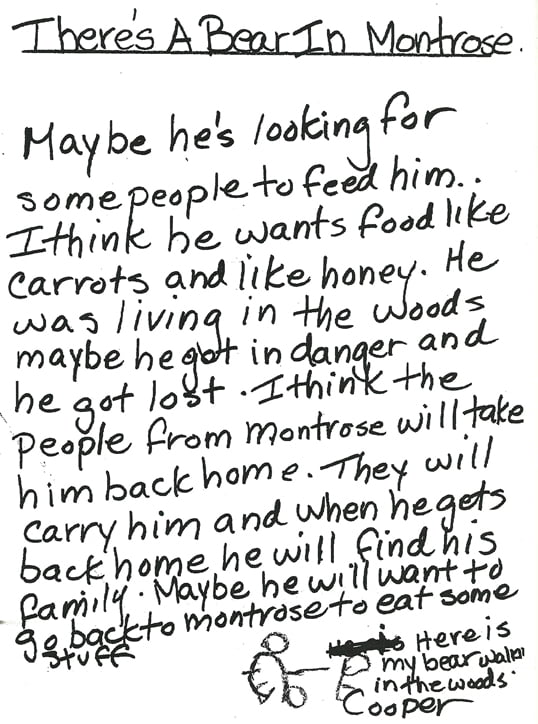 There's A Bear In Montrose.
Maybe he's looking for
some people to feed him..
I think he wants food like
carrots and like honey. He
was living in the woods
maybe he got in danger and
he got lost. I think the
people from montrose will take
him back home. They will
carry him and when he gets
back home he will find his
family. Maybe he will want to
go back to montrose to eat some
stuff
Here is
my bear
in the woods.
Cooper